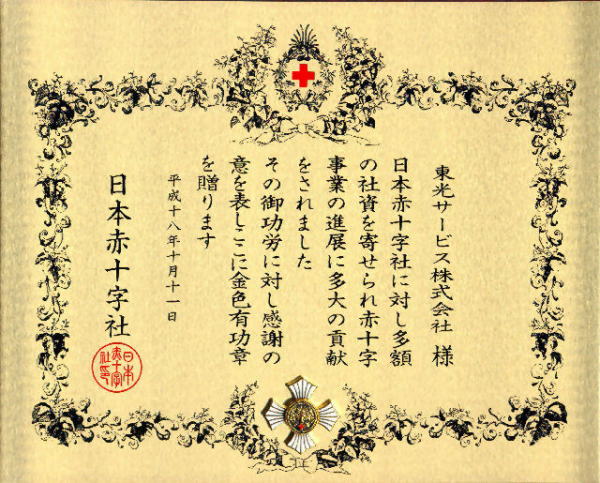 東光サービス株式会社 様
日本赤十字社に対し多額
の社資を寄せられ赤十字
事業の進展に多大の貢献
をされました
その御功労に対し感謝の
意を表しここに金色有功章
を贈ります
平成十八年十月十一日
日本赤十字社
日本
赤十字
社印